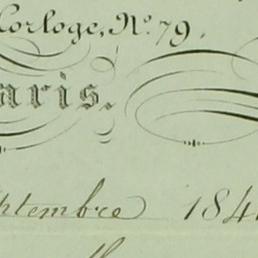 Horloge, Nº 79.
aris.
ptembre 184